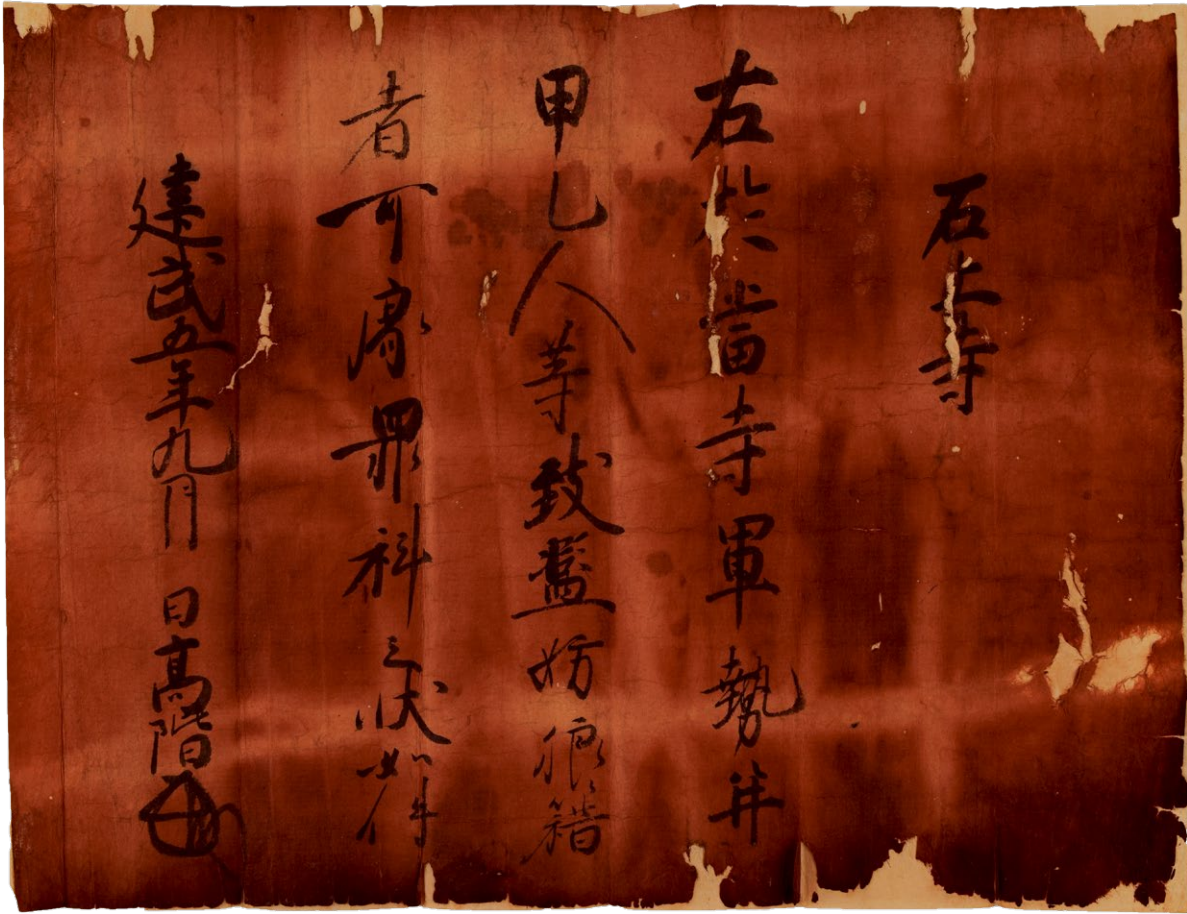 石上寺
右於當寺軍勢并
甲乙人等致濫妨狼籍
者可處罪科之状如件
建武五年九月 日高階